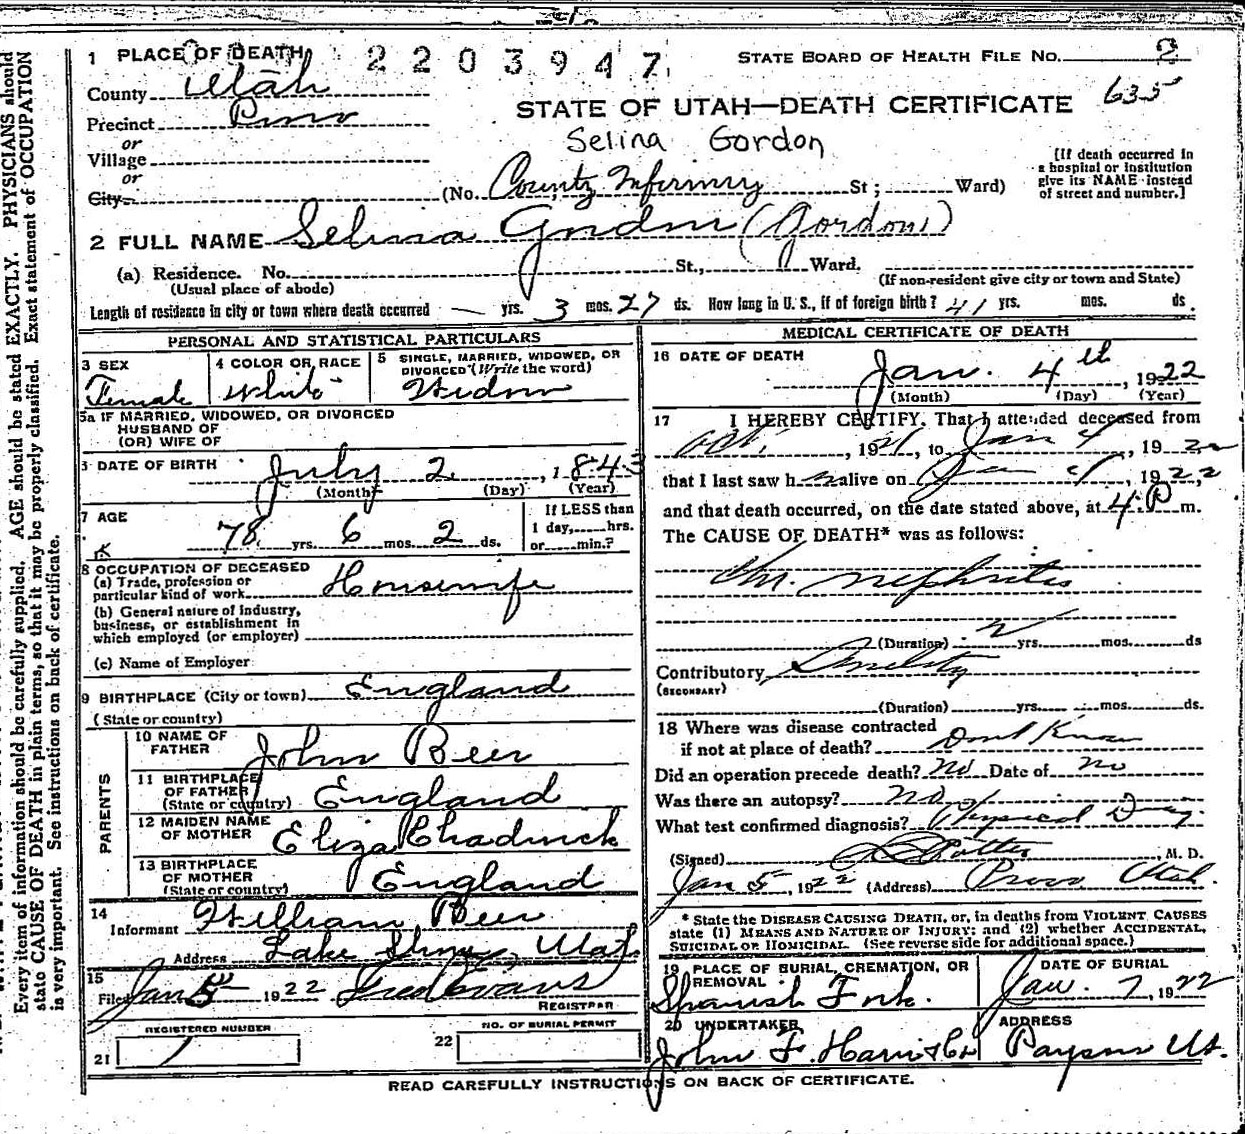 1 PLACE OF DEATH 2203947 STATE BOARD OF HEALTH FILE NO. 2
County Utah
STATE OF UTAH—DEATH CERTIFICATE 635
Precinct Provo
or
Selina Gordon
Village
or
City
(No. County Infirmry St; Ward)
[If death occurred in
a hospital or institution
give its NAME instead
of street and number.]
2 FULL NAME Selina Gordon (Gordon)
(a) Residence. No. St., Ward.
(Usual place of abode) (If non-resident give city or town and State)
Length of residence in city or town where death occurred — yrs. 3 mos. 27 ds. How long in U. S., if of foreign birth? 41 yrs. mos. ds.
PERSONAL AND STATISTICAL PARTICULARS
3 SEX Female
4 COLOR OR RACE White
5 SINGLE, MARRIED, WIDOWED, OR
DIVORCED (Write the word)
Widow
5a IF MARRIED, WIDOWED, OR DIVORCED
HUSBAND OF
(OR) WIFE OF
DATE OF BIRTH July 2, 1843
(Month) (Day) (Year)
7 AGE
78 yrs. 6 mos. 2 ds.
If LESS than
1 day, hrs.
or min.?
8 OCCUPATION OF DECEASED
(a) Trade, profession or
particular kind of work Housewife
(b) General nature of industry,
business, or establishment in
which employed (or employer)
(c) Name of Employer
9 BIRTHPLACE (City or town) England
(State or country)
PARENTS
10 NAME OF
FATHER John Beer
11 BIRTHPLACE
OF FATHER
(State or country) England
12 MAIDEN NAME
OF MOTHER Eliza Chadwick
13 BIRTHPLACE
OF MOTHER
(State or country) England
14
Informant William Beer
Address Lake Shore, Utah
15
Filed Jan 5 1922 Fred Evans
REGISTRAR
REGISTERED NUMBER
21 1
NO. OF BURIAL PERMIT
22
MEDICAL CERTIFICATE OF DEATH
16 DATE OF DEATH
Jan. 4th, 1922
(Month) (Day) (Year)
17 I HEREBY CERTIFY, That I attended deceased from
Oct., 1921, to Jan 4, 1922
that I last saw h alive on Jan 4, 1922,
and that death occurred, on the date stated above, at 4 P m.
The CAUSE OF DEATH* was as follows:
Chr. nephritis
(Duration) 2 yrs. mos. ds
Contributory Senility
(SECONDARY)
(Duration) yrs. mos. ds.
18 Where was disease contracted
if not at place of death? Dont Know
Did an operation precede death? No Date of no
Was there an autopsy? no
What test confirmed diagnosis? Physical
(Signed) , M. D.
Jan 5, 1922 (Address) Provo Utah.
* State the DISEASE CAUSING DEATH, or, in deaths from VIOLENT CAUSES
state (1) MEANS AND NATURE OF INJURY; and (2) whether ACCIDENTAL,
SUICIDAL OR HOMICIDAL. (See reverse side for additional space.)
19 PLACE OF BURIAL, CREMATION, OR
REMOVAL
Spanish Fork.
DATE OF BURIAL
Jan. 7, 1922
20 UNDERTAKER
John F. Harris & Co
ADDRESS
Payson Ut.
READ CAREFULLY INSTRUCTIONS ON BACK OF CERTIFICATE.
Every item of information should be carefully supplied. AGE should be stated EXACTLY. PHYSICIANS should
state CAUSE OF DEATH in plain terms, so that it may be properly classified. Exact statement of OCCUPATION
is very important. See instructions on back of certificate.